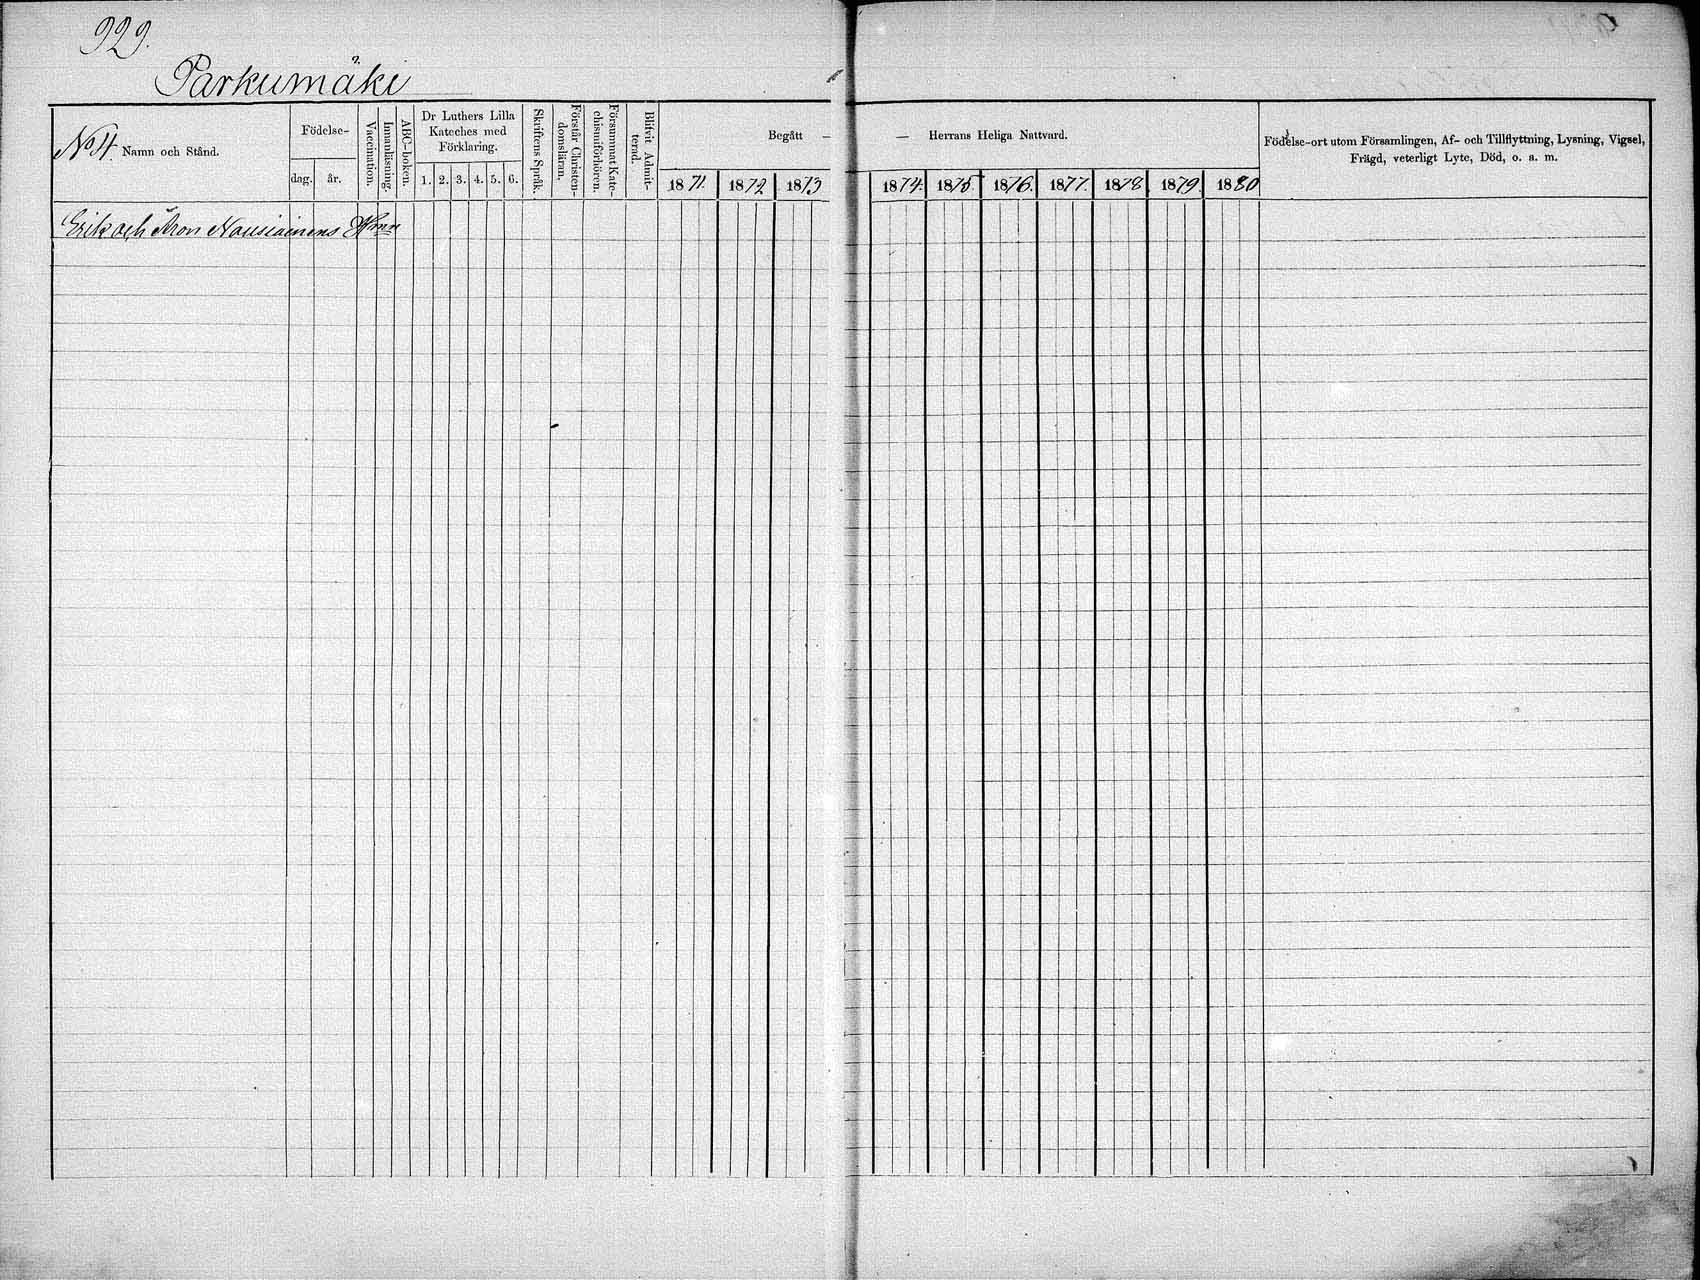 929.
Parkumäki
No 4. Namn och Stånd.
Födelse-
dag. år.
Vaccination.
Innanläsning.
ABC-boken.
Dr Luthers Lilla
Kateches med
Förklaring.
1. 2. 3. 4. 5. 6.
Skriftens Språk.
Förstår Christen-
domsläran,
Försummat Kate-
chismiförhören.
Blifvit Admit-
terad.
Begått — — Herrans Heliga Nattvard.
1871. 1872 1873 1874. 1875. 1876. 1877. 1878. 1879. 1880
Födelse-ort utom Församlingen, Af- och Tillflyttning, Lysning, Vigsel,
Frägd, veterligt Lyte, Död, o. a. m.
Erik och Aron Nousiainens